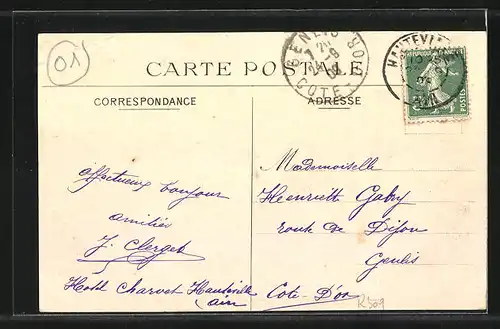 01
GENLIS
COTE-D'OR
HAUTEVILLE
AIN
POSTES
CARTE POSTALE
CORRESPONDANCE
ADRESSE
affectueux bonjour
amitiés
J. Clerget
Hotel Charvet Hauteville
Ain
Mademoiselle
Henriett Gaby
route de Dijon
Genlis
Cote-D'or